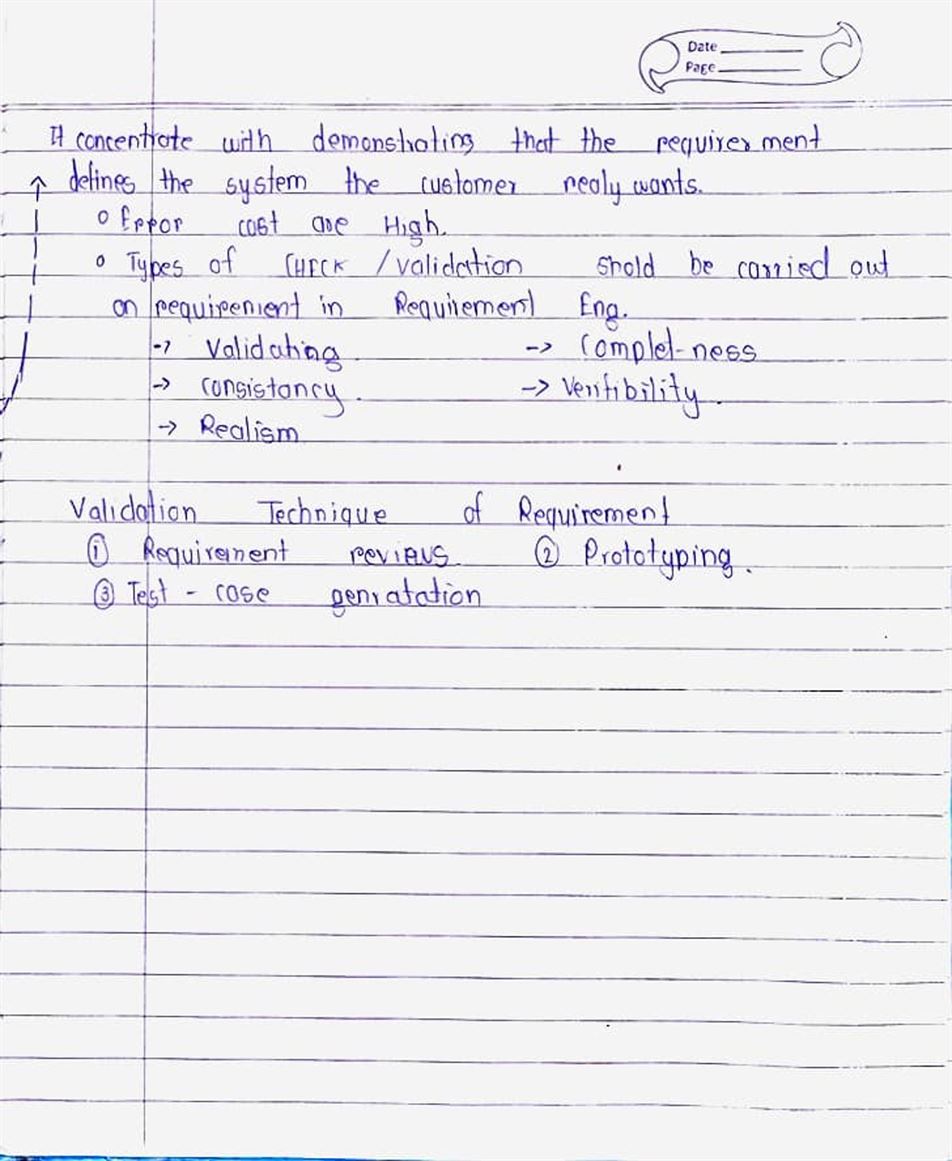 Date
Page
It concentrate with demonstrating that the requirerment
defines the system the customer realy wants.
o Error cost are High.
o Types of CHECK / validation shold be carried out
on requirement in Requirement Eng.
-> Validating -> Complet-ness
-> Consistancy. -> Verifibility.
-> Realism
Validation Technique of Requirement
① Requirement reviews ② Prototyping.
③ Test - case genratation